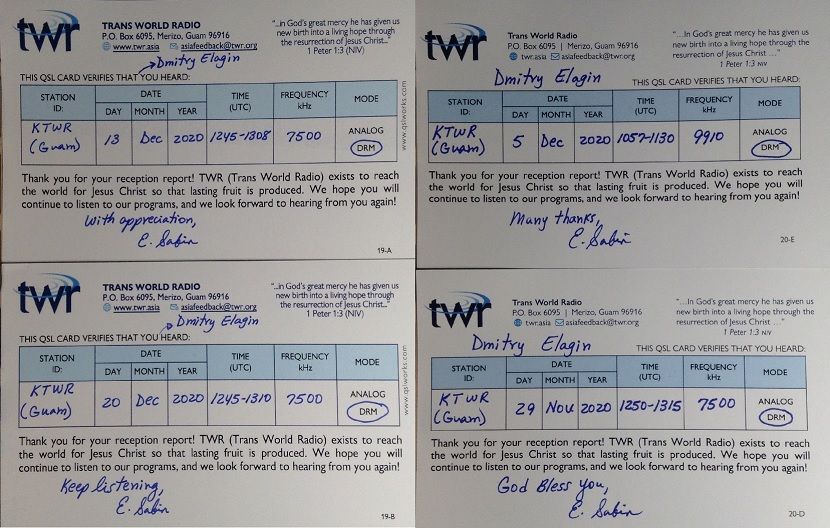 twr
TRANS WORLD RADIO
P.O. Box 6095, Merizo, Guam 96916
www.twr.asia asiafeedback@twr.org
"...in God's great mercy he has given us
new birth into a living hope through
the resurrection of Jesus Christ..."
1 Peter 1:3 (NIV)
Dmitry Elagin
THIS QSL CARD VERIFIES THAT YOU HEARD:
STATION ID: DATE TIME (UTC) FREQUENCY kHz MODE
DAY MONTH YEAR
KTWR (Guam) 13 Dec 2020 1245-1308 7500 ANALOG DRM
Thank you for your reception report! TWR (Trans World Radio) exists to reach
the world for Jesus Christ so that lasting fruit is produced. We hope you will
continue to listen to our programs, and we look forward to hearing from you again!
With appreciation,
E. Sabin
19-A
www.qslworks.com
twr
Trans World Radio
P.O. Box 6095 | Merizo, Guam 96916
twr.asia asiafeedback@twr.org
"...In God's great mercy he has given us
new birth into a living hope through the
resurrection of Jesus Christ ..."
1 Peter 1:3 NIV
Dmitry Elagin
THIS QSL CARD VERIFIES THAT YOU HEARD:
STATION ID: DATE TIME (UTC) FREQUENCY kHz MODE
DAY MONTH YEAR
KTWR (Guam) 5 Dec 2020 1057-1130 9910 ANALOG DRM
Thank you for your reception report! TWR (Trans World Radio) exists to reach
the world for Jesus Christ so that lasting fruit is produced. We hope you will
continue to listen to our programs, and we look forward to hearing from you again!
Many thanks,
E. Sabin
20-E
twr
TRANS WORLD RADIO
P.O. Box 6095, Merizo, Guam 96916
www.twr.asia asiafeedback@twr.org
"...in God's great mercy he has given us
new birth into a living hope through
the resurrection of Jesus Christ..."
1 Peter 1:3 (NIV)
Dmitry Elagin
THIS QSL CARD VERIFIES THAT YOU HEARD:
STATION ID: DATE TIME (UTC) FREQUENCY kHz MODE
DAY MONTH YEAR
KTWR (Guam) 20 Dec 2020 1245-1310 7500 ANALOG DRM
Thank you for your reception report! TWR (Trans World Radio) exists to reach
the world for Jesus Christ so that lasting fruit is produced. We hope you will
continue to listen to our programs, and we look forward to hearing from you again!
Keep listening,
E. Sabin
19-B
www.qslworks.com
twr
Trans World Radio
P.O. Box 6095 | Merizo, Guam 96916
twr.asia asiafeedback@twr.org
"...In God's great mercy he has given us
new birth into a living hope through the
resurrection of Jesus Christ ..."
1 Peter 1:3 NIV
Dmitry Elagin
THIS QSL CARD VERIFIES THAT YOU HEARD:
STATION ID: DATE TIME (UTC) FREQUENCY kHz MODE
DAY MONTH YEAR
KTWR (Guam) 29 Nov 2020 1250-1315 7500 ANALOG DRM
Thank you for your reception report! TWR (Trans World Radio) exists to reach
the world for Jesus Christ so that lasting fruit is produced. We hope you will
continue to listen to our programs, and we look forward to hearing from you again!
God Bless you,
E. Sabin
20-D